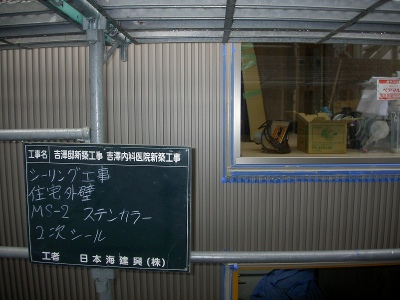 工事名 吉澤邸新築工事 吉澤内科医院新築工事
シーリング工事
住宅外壁
MS-2 ステンカラー
2次シール
工者 日本海建興(株)